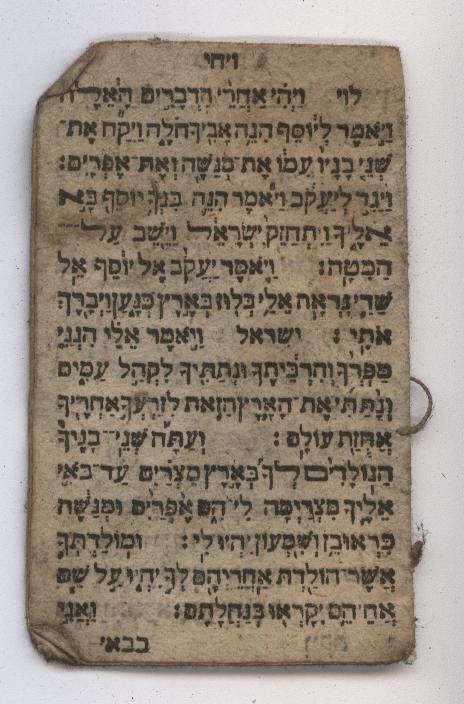 ויחי
לוי וַיְהִ֗י אַחֲרֵי֙ הַדְּבָרִ֣ים הָאֵ֔לֶּה
וַיֹּ֣אמֶר לְיוֹסֵ֔ף הִנֵּ֥ה אָבִ֖יךָ חֹלֶ֑ה וַיִּקַּ֞ח אֶת־
שְׁנֵ֤י בָנָיו֙ עִמּ֔וֹ אֶת־מְנַשֶּׁ֖ה וְאֶת־אֶפְרָֽיִם׃
וַיַּגֵּ֣ד לְיַעֲקֹ֔ב וַיֹּ֕אמֶר הִנֵּ֛ה בִּנְךָ֥ יוֹסֵ֖ף בָּ֣א
אֵלֶ֑יךָ וַיִּתְחַזֵּק֙ יִשְׂרָאֵ֔ל וַיֵּ֖שֶׁב עַל־
הַמִּטָּֽה׃ וַיֹּ֤אמֶר יַעֲקֹב֙ אֶל־יוֹסֵ֔ף אֵ֥ל
שַׁדַּ֛י נִרְאָֽה־אֵלַ֥י בְּל֖וּז בְּאֶ֣רֶץ כְּנָ֑עַן וַיְבָ֖רֶךְ
אֹתִֽי׃ ישראל וַיֹּ֣אמֶר אֵלַ֗י הִנְנִ֤י
מַפְרְךָ֙ וְהִרְבִּיתִ֔ךָ וּנְתַתִּ֖יךָ לִקְהַ֣ל עַמִּ֑ים
וְנָ֨תַתִּ֜י אֶת־הָאָ֧רֶץ הַזֹּ֛את לְזַרְעֲךָ֥ אַחֲרֶ֖יךָ
אֲחֻזַּ֥ת עוֹלָֽם׃ וְעַתָּ֡ה שְׁנֵֽי־בָנֶיךָ֩
הַנּוֹלָדִ֨ים לְךָ֜ בְּאֶ֣רֶץ מִצְרַ֗יִם עַד־בֹּאִ֥י
אֵלֶ֛יךָ מִצְרַ֖יְמָה לִי־הֵ֑ם אֶפְרַ֙יִם֙ וּמְנַשֶּׁ֔ה
כִּרְאוּבֵ֥ן וְשִׁמְע֖וֹן יִֽהְיוּ־לִֽי׃ וּמוֹלַדְתְּךָ֛
אֲשֶׁר־הוֹלַ֥דְתָּ אַחֲרֵיהֶ֖ם לְךָ֣ יִהְי֑וּ עַ֣ל שֵׁ֧ם
אֲחֵיהֶ֛ם יִקָּרְא֖וּ בְּנַחֲלָתָֽם׃ וַאֲנִ֣י
בבאי